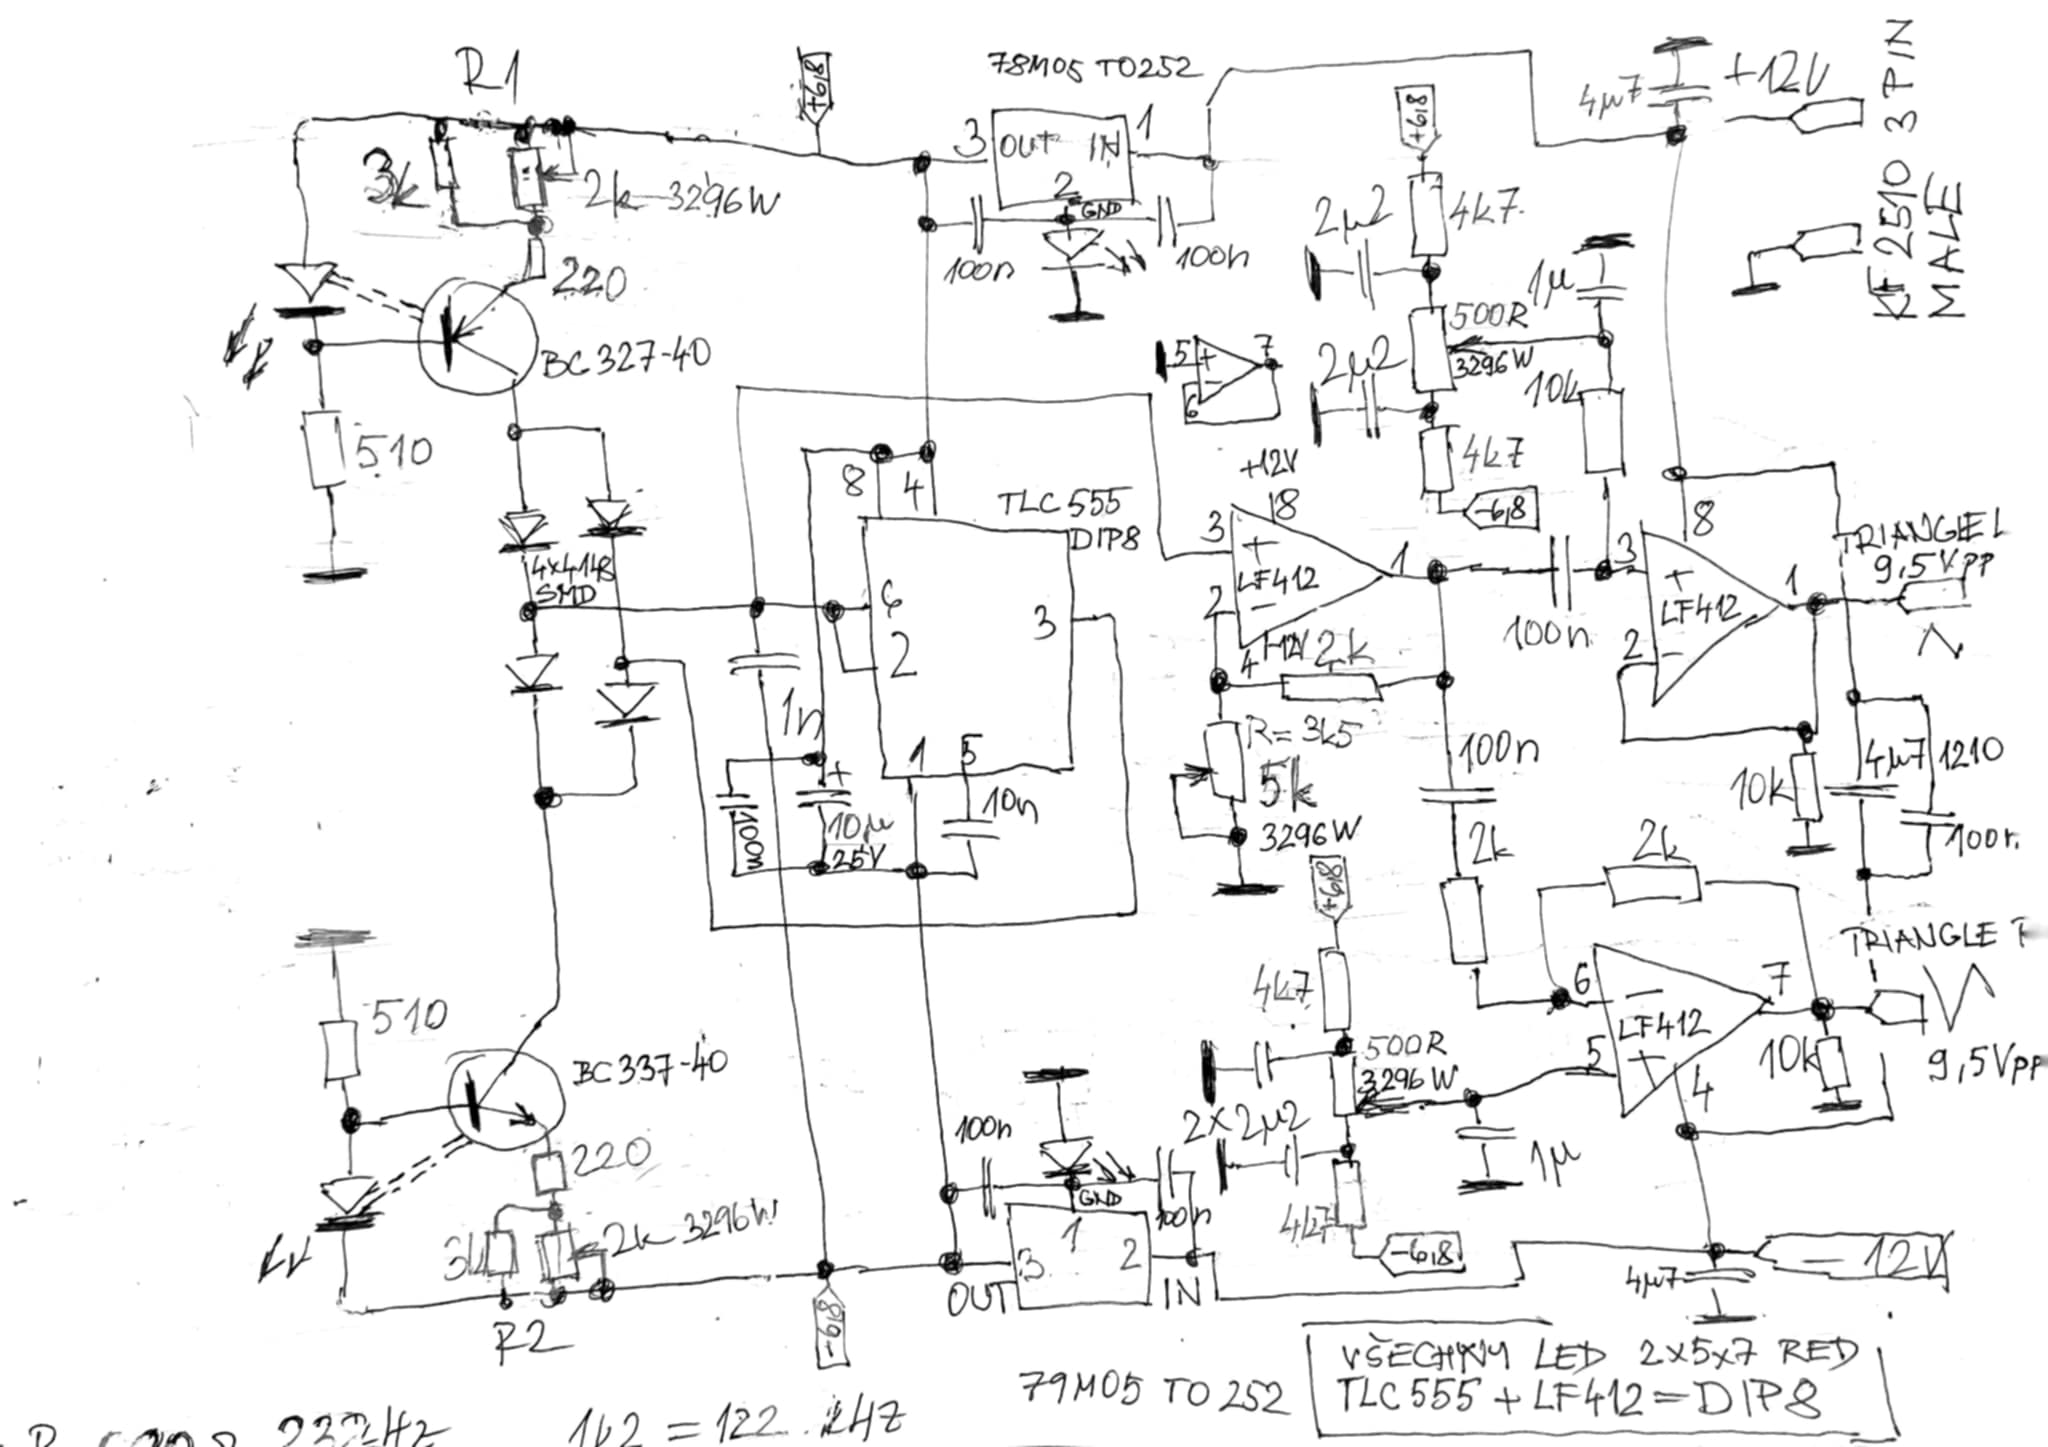 R1
3k
2k-3296W
220
BC327-40
510
4x4148
SMD
+6,8
78M05 TO252
3 OUT IN 1
2
GND
100n
100n
+6,8
4k7
2µ2
500R
3296W
2µ2
4k7
-6,8
1µ
10k
4µ7
+12V
KF2510 3 PIN
MALE
5 + 7
6 -
8 4
TLC555
DIP8
6
2
3
1 5
1n
100n
+
10µ
25V
10n
+12V
8
3 +
LF412
2 -
1
4 -12V
2k
R=3k5
5k
3296W
100n
100n
2k
8
3 +
LF412
2 -
1
TRIANGLE
9,5Vpp
10k
4µ7 1210
2k
6 -
LF412
5 +
7
4
TRIANGLE
9,5Vpp
10k
+6,8
4k7
500R
3296W
2x2µ2
1µ
4k7
-6,8
510
BC337-40
220
2k 3296W
R2
-6,8
100n
GND
100n
3 1 2
OUT IN
79M05 TO252
4µ7
-12V
VŠECHNY LED 2x5x7 RED
TLC555 + LF412 = DIP8
1k2 = 122 kHz